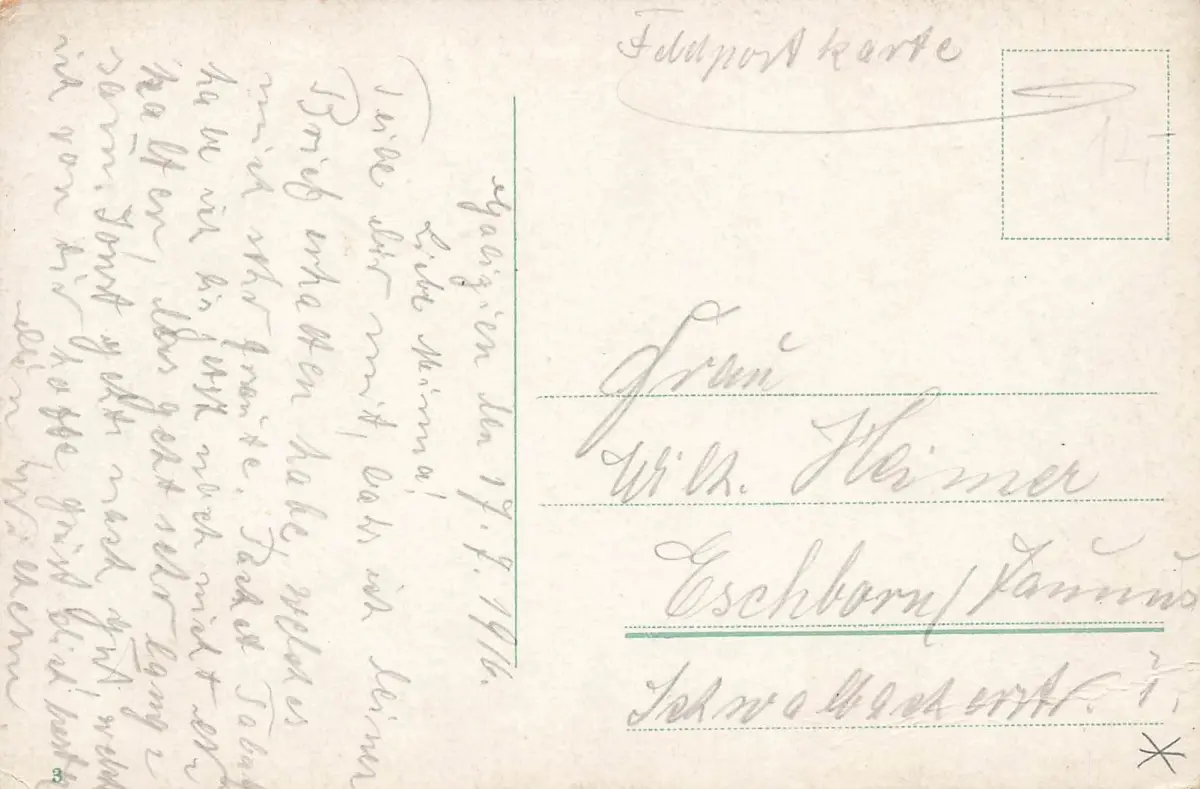 Feldpostkarte
14
Galizien den 17.7.1916.
Liebe Minna!
Teile dir mit, das ich deinen
Brief erhalten habe, welches
mich sehr freute. Packet Tabak
habe ich bis jetzt noch nicht er-
halten, geht sehr lang-
sam. Sonst geht noch gut, welch
ich von dir hoffe, grüst dich bestens
dein Wilhelm.
Frau
Wilh. Heimer
Eschborn/Taunus
Schwalbacherstr. 1.
3